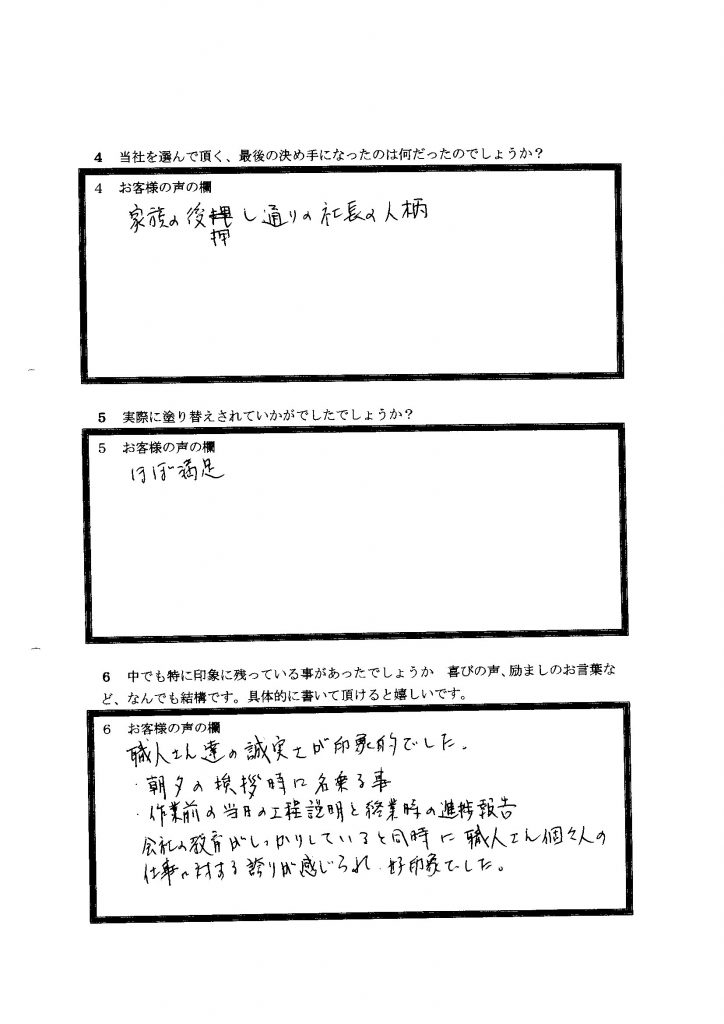 4 当社を選んで頂く、最後の決め手になったのは何だったのでしょうか？
4 お客様の声の欄
家族の後押し通りの社長の人柄
5 実際に塗り替えされていかがでしたでしょうか？
5 お客様の声の欄
ほぼ満足
6 中でも特に印象に残っている事があったでしょうか 喜びの声、励ましのお言葉な
ど、なんでも結構です。具体的に書いて頂けると嬉しいです。
6 お客様の声の欄
職人さん達の誠実さが印象的でした。
・朝夕の挨拶時に名乗る事
・作業前の当日の工程説明と終業時の進捗報告
会社の教育がしっかりしていると同時に職人さん個々人の
仕事に対する誇りが感じられ、好印象でした。